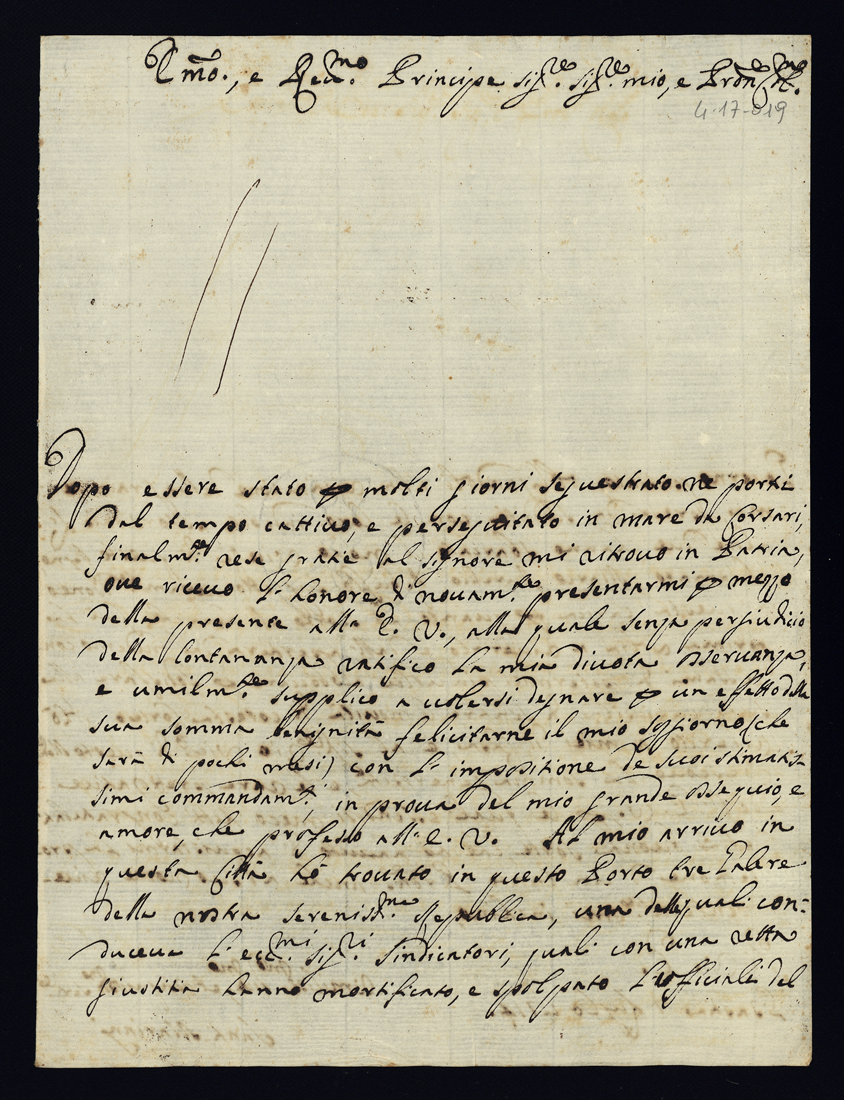 Emo., e Recc.mo Principe sig.re sig.re mio, e Pron.e
4-17-019
Dopo essere stato p molti giorni sequestrato ne porti
dal tempo cattiuo, e perseguitato in mare da Corsari,
finalm.te rese gratie al signore mi ritrouo in Patria,
oue riceuo l'honore di nouam.te presentarmi p mezzo
della presente all'E. V., alla quale senza pergiudicio
della lontananza ratifico la mia diuota osseruanza,
e umilm.te supplico a uolersi degnare p un effetto della
sua somma benignità felicitarne il mio soggiorno (che
sarà di pochi mesi) con l'impositione de suoi stimatis
simi commandam.ti, in proua del mio grande ossequio, e
amore, che professo all'E. V. Al mio arriuo in
questa Città hò trouato in questo Porto tre Galere
della nostra sereniss.ma Republica, una delle quali con=
duceua l'ecc.mi sig.ri Sindicatori, quali con una retta
giustitia hanno mortificato, e spolpato l'officiali del